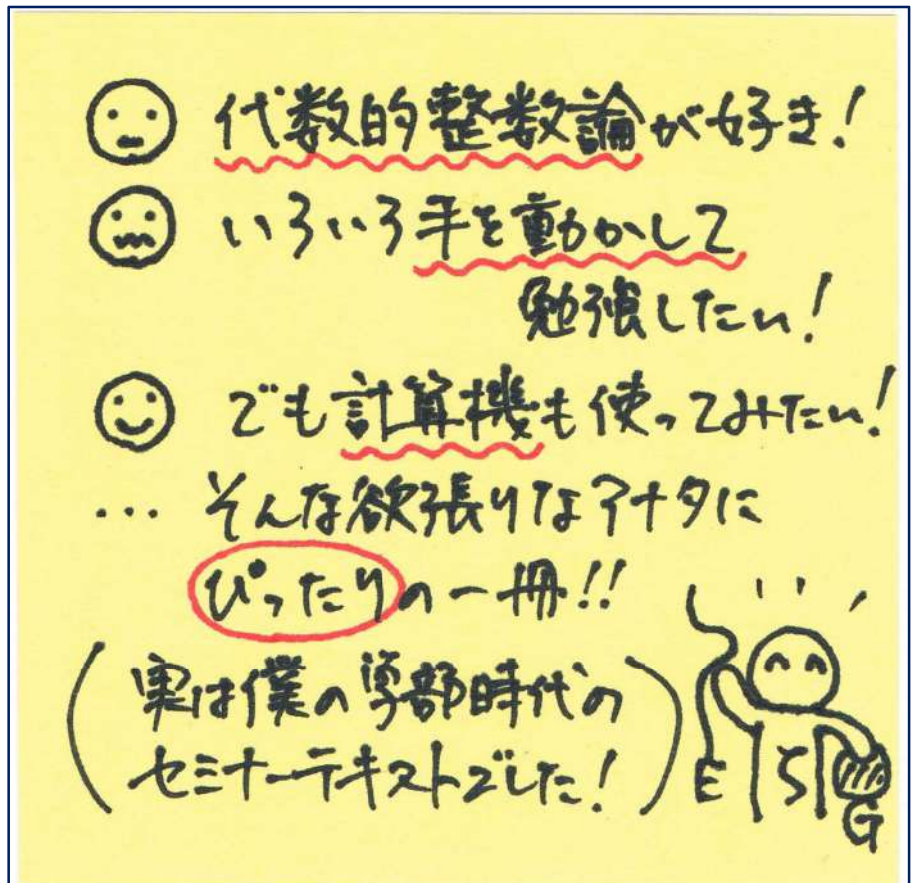 代数的整数論が好き!
いろいろ手を動かして
勉強したい!
でも計算機も使ってみたい!
... そんな欲張りなアナタに
ぴったりの一冊!!
(実は僕の学部時代の
セミナーテキストでした!)
E S G